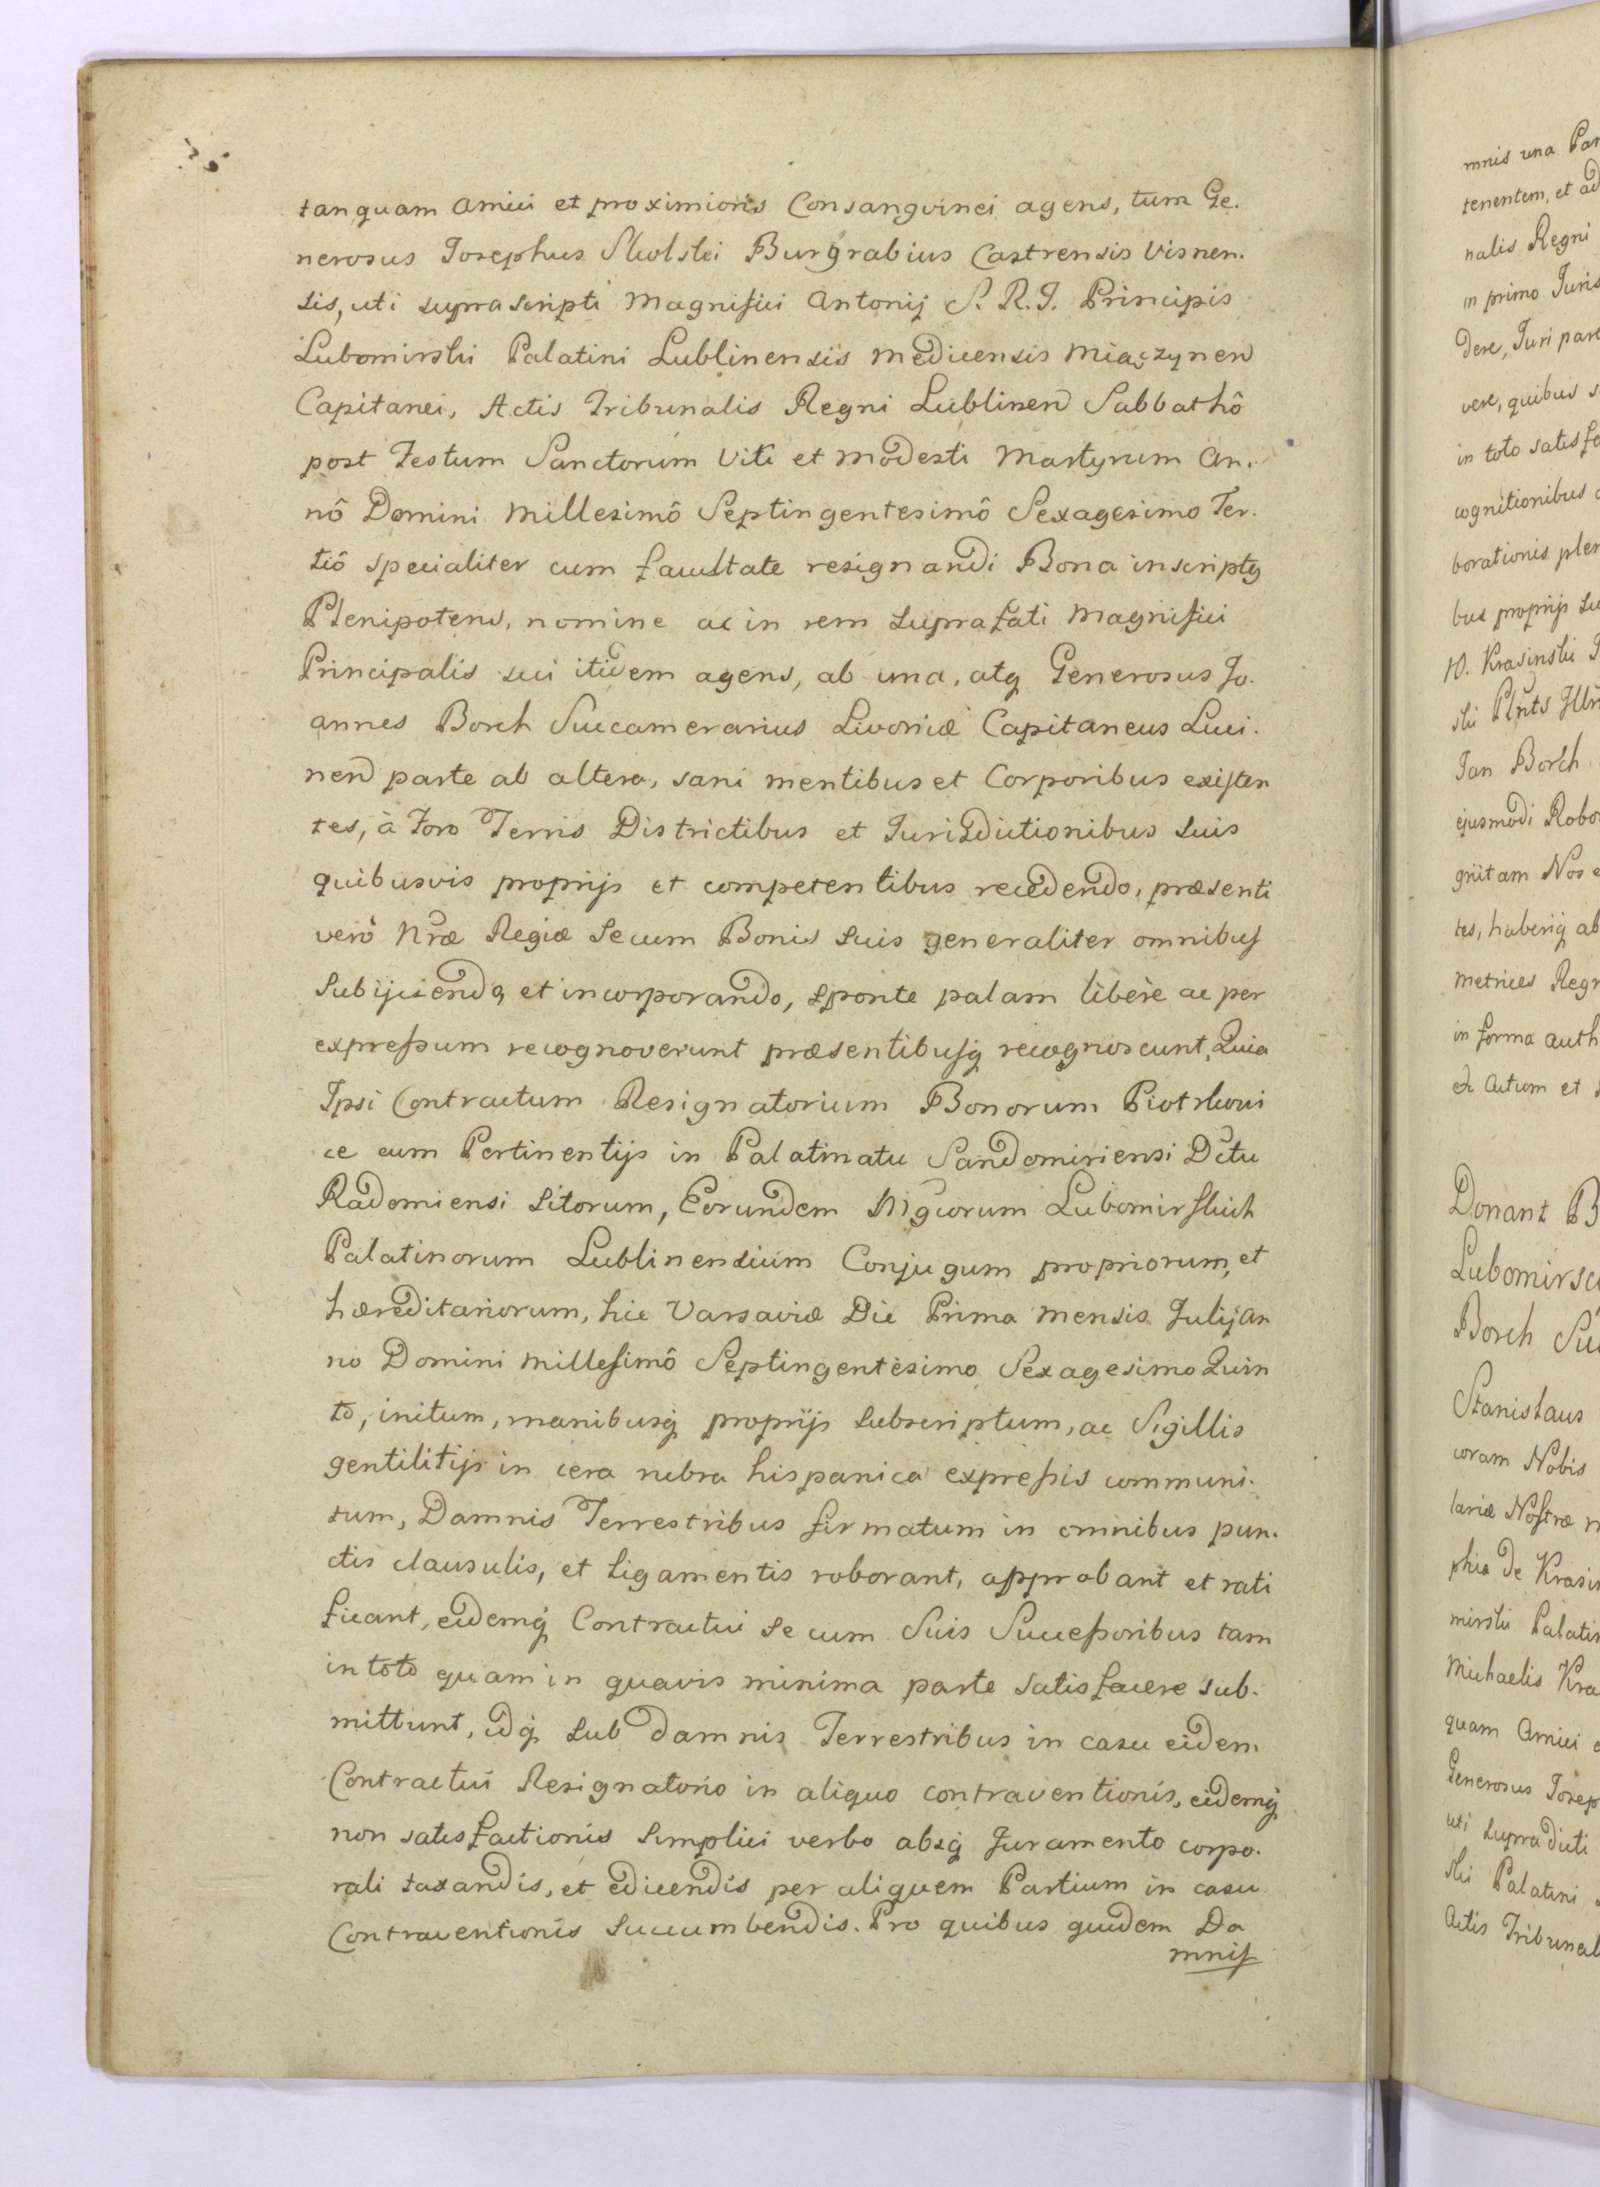 tanquam amici et proximioris Consangvinei agens, tum Ge.
nerosus Josephus Skolski Burgrabius Castrensis Visnen.
sis, uti suprascripti Magnifici Antonij S. R. J. Principis
Lubomirski Palatini Lublinensis Medicensis Miączynen
Capitanei, Actis Tribunalis Regni Lublinen Sabbathô
post Festum Sanctorum Viti et Modesti Martyrum An.
nô Domini Millesimô Septingentesimô Sexagesimo Ter.
tiô specialiter cum facultate resignandi Bona inscriptq
Plenipotens, nomine ac in rem suprafati Magnifici
Principalis sui itidem agens, ab una, atq Generosus Jo.
annes Borch Succamerarius Livoniæ Capitaneus Luci.
nen parte ab altera, sani mentibus et Corporibus existen
tes, à Foro Terris Districtibus et Jurisdictionibus suis
quibusvis proprijs et competentibus recedendo, præsenti
verô Nræ Regiæ se cum Bonis suis generaliter omnibus
subijciendo, et incorporando, sponte palam liberè ac per
expressum recognoverunt præsentibusq recognoscunt, Quia
Ipsi Contractum Resignatorium Bonorum Piotrkowi
ce cum Pertinentijs in Palatinatu Sandomiriensi Dctu
Radomiensi sitorum, Eorundem Mgcorum Lubomirskich
Palatinorum Lublinensium Conjugum propriorum, et
hæreditariorum, hic Varsaviæ Die Prima mensis Julij An
no Domini Millesimô Septingentèsimo Sexagesimo Quin
to, initum, manibusq proprijs subscriptum, ac Sigillis
gentilitijs in cera rubra hispanica expressis communi.
tum, Damnis Terrestribus firmatum in omnibus pun.
ctis clausulis, et ligamentis roborant, approbant et rati
ficant, eidemq Contractui se cum Suis Successoribus tam
in toto quam in quavis minima parte satisfacere sub.
mittunt, idq sub damnis Terrestribus in casu eidem
Contractui Resignatorio in aliquo contraventionis, eidemq
non satisfactionis simplici verbo absq Juramento corpo.
rali taxandis, et edicendis per aliquem Partium in casu
Contraventionis succumbendis. Pro quibus quidem Da
mnis
mnis una Par
tenentem, et ad
nalis Regni
in primo Juris
dere, Juri pare
vere, quibus s
in toto satisfa
cognitionibus
borationis plen
bus proprijs su
Krasinski
ski Plnts Illr
Jan Borch
ejusmodi Robo
gnitam Nos e
tes, haberiq ab
Metrices Regn
in forma auth
Actum et
Donant B
Lubomirsc
Borch Su
Stanislaus
coram Nobis
lariæ Nostræ m
phia de Krasin
mirski Palatin
Michaelis Kra
quam Amici e
Generosus Josep
uti supradicti
ski Palatini
Actis Tribunal